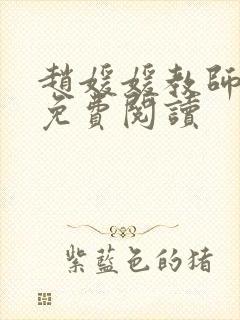 趙媛媛教師
免費閱讀
紫藍色的猪